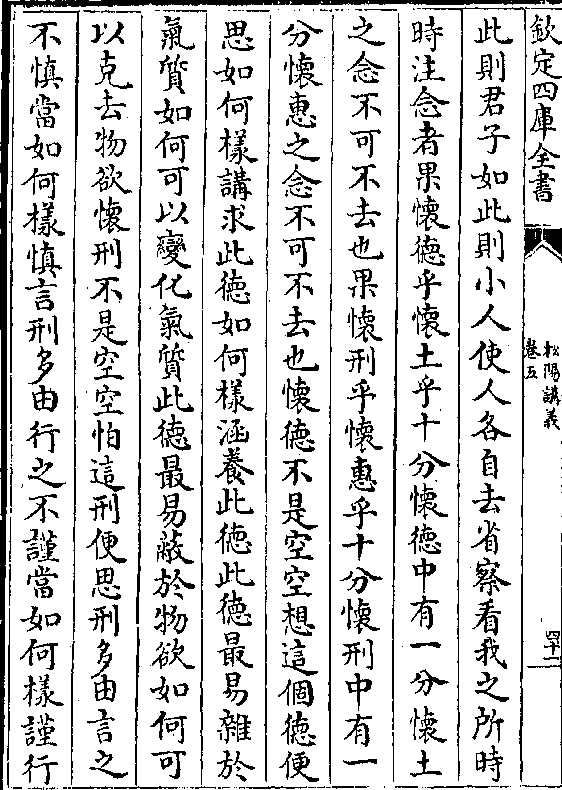 欽定四庫全書
松陽講義
卷五
四十二
此則君子如此則小人使人各自去省察看我之所時
時注念者果懷德乎懷土乎十分懷德中有一分懷土
之念不可不去也果懷刑乎懷惠乎十分懷刑中有一
分懷惠之念不可不去也懷德不是空空想這個德便
思如何樣講求此德如何樣涵養此德此德最易雜於
氣質如何可以變化氣質此德最易蔽於物欲如何可
以克去物欲懷刑不是空空怕這刑便思刑多由言之
不慎當如何樣慎言刑多由行之不謹當如何樣謹行